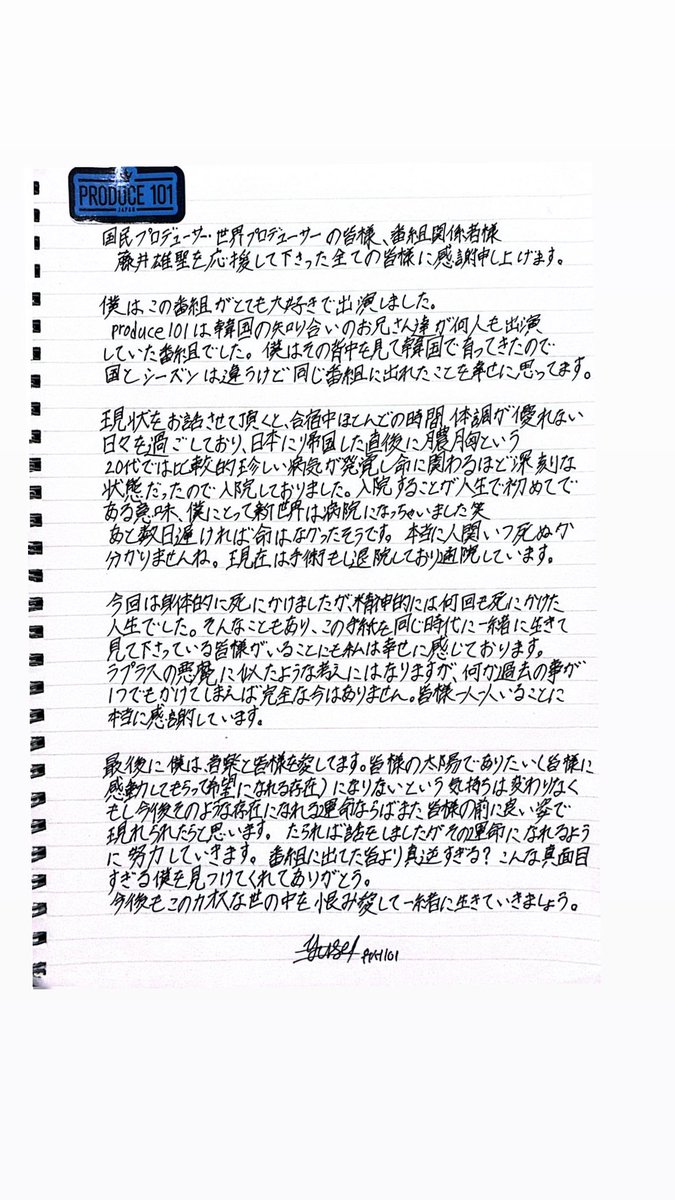 PRODUCE 101
JAPAN
国民プロデューサー・世界プロデューサーの皆様、番組関係者様
藤井雄聖を応援して下さった全ての皆様に感謝申し上げます。
僕はこの番組がとても大好きで出演しました。
produce101は韓国の知り合いのお兄さん達が何人も出演
していた番組でした。僕はその背中を見て韓国で育ってきたので
国とシーズンは違うけど同じ番組に出れたことを幸せに思ってます。
現状をお話させて頂くと、合宿中ほとんどの時間、体調が優れない
日々を過ごしており、日本に帰国した直後に膿胸という
20代では比較的珍しい病気が発覚し命に関わるほど深刻な
状態だったので入院しておりました。入院することが人生で初めてで
ある意味、僕にとって新世界は病院になっちゃいました笑
あと数日遅ければ命はなかったそうです。本当に人間いつ死ぬか
分かりませんね。現在は手術もし退院しており通院しています。
今回は身体的に死にかけましたが、精神的には何回も死にかけた
人生でした。そんなこともあり、この手紙を同じ時代に一緒に生きて
見て下さっている皆様がいることにも私は幸せに感じております。
ラプラスの悪魔に似たような考えにはなりますが、何か過去の事が
1つでもかけてしまえば完全な今はありません。皆様一人一人いることに
本当に感謝しています。
最後に僕は、音楽と皆様を愛してます。皆様の太陽でありたい(皆様に
感動してもらって希望になれる存在)になりたいという気持ちは変わりなく
もし今後そのような存在になれる運命ならばまた皆様の前に良い姿で
現れられたらと思います。たられば話をしましたがその運命になれるよう
に努力していきます。番組に出てた時より真逆すぎる?こんな真面目
すぎる僕を見つけてくれてありがとう。
今後もこのカオスな世の中を恨み愛して一緒に生きていきましょう。